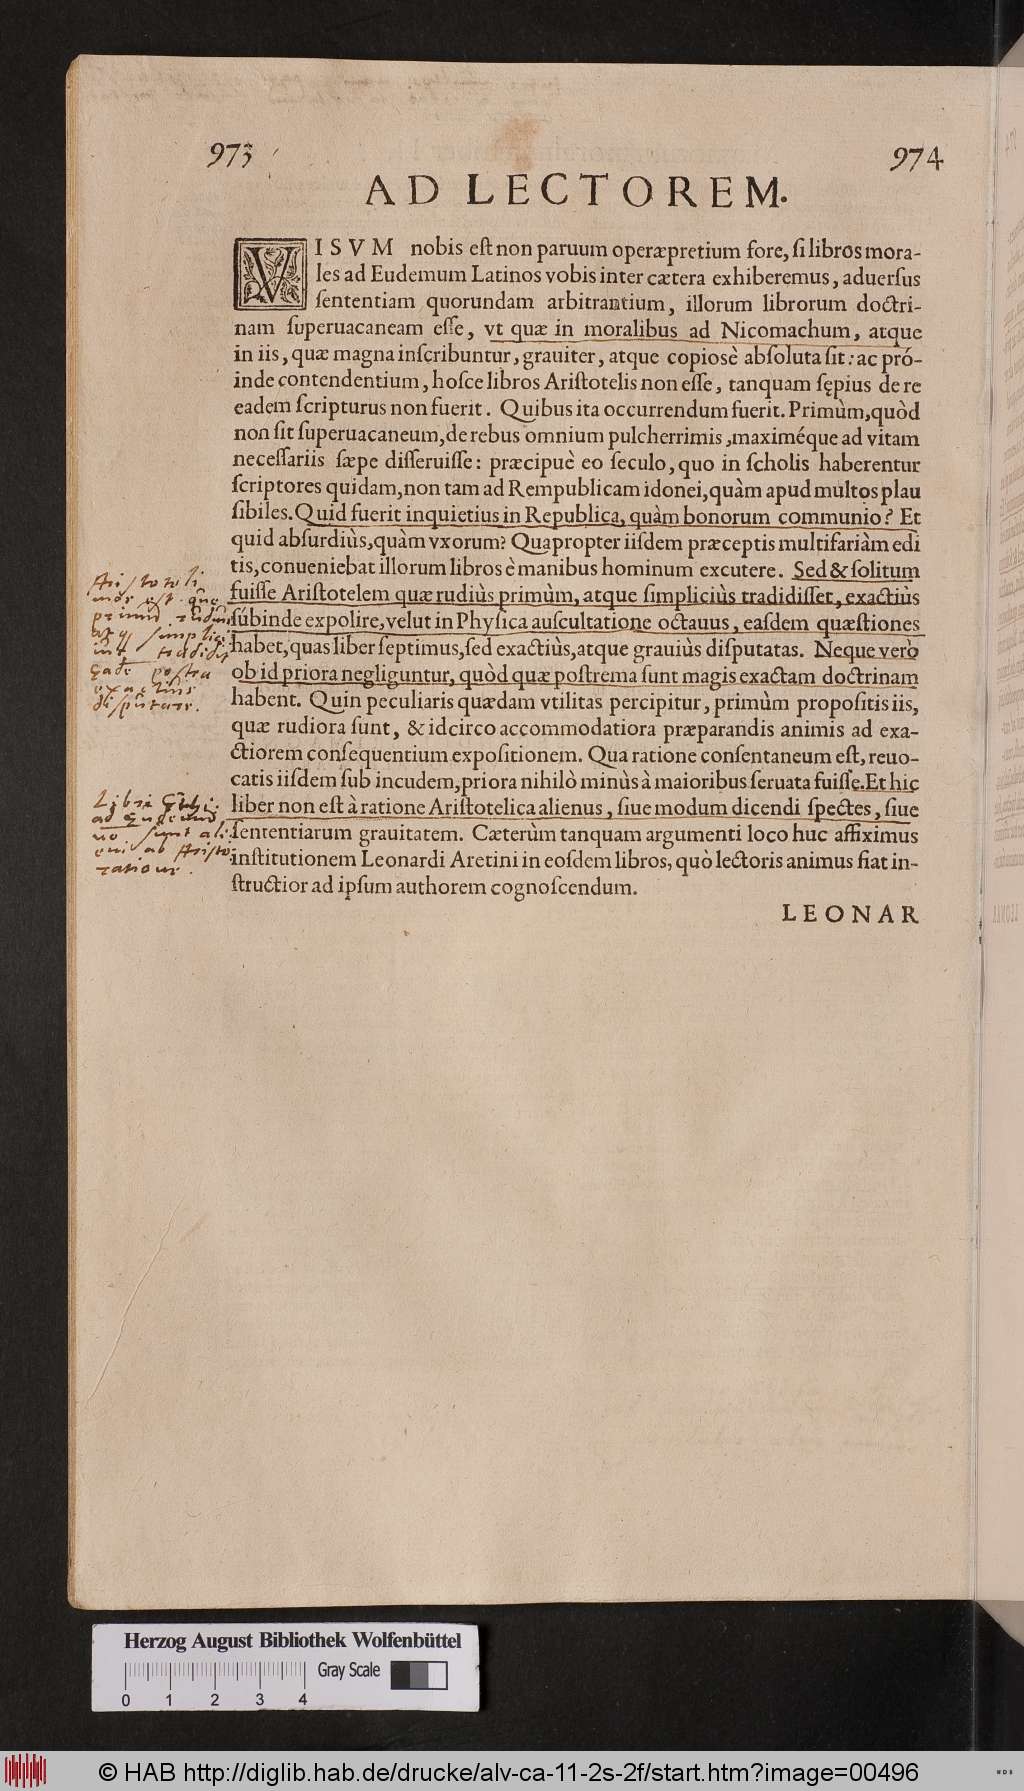 973
974
AD LECTOREM.
VISVM nobis eſt non paruum operæpretium fore, ſi libros mora-
les ad Eudemum Latinos vobis inter cætera exhiberemus, aduerſus
ſententiam quorundam arbitrantium, illorum librorum doctri-
nam ſuperuacaneam eſſe, vt quæ in moralibus ad Nicomachum, atque
in iis, quæ magna inſcribuntur, grauiter, atque copiosè abſoluta ſit: ac pró-
inde contendentium, hoſce libros Ariſtotelis non eſſe, tanquam ſępius de re
eadem ſcripturus non fuerit. Quibus ita occurrendum fuerit. Primùm, quòd
non ſit ſuperuacaneum, de rebus omnium pulcherrimis, maximéque ad vitam
neceſſariis ſæpe diſſeruiſſe: præcipuè eo ſeculo, quo in ſcholis haberentur
ſcriptores quidam, non tam ad Rempublicam idonei, quàm apud multos plau
ſibiles. Quid fuerit inquietius in Republica, quàm bonorum communio? Et
quid abſurdiùs, quàm vxorum? Quapropter iiſdem præceptis multifariàm edi
tis, conueniebat illorum libros è manibus hominum excutere. Sed & ſolitum
fuiſſe Ariſtotelem quæ rudiùs primùm, atque ſimpliciùs tradidiſſet, exactiùs
ſúbinde expolire, velut in Phyſica auſcultatione octauus, eaſdem quæſtiones
habet, quas liber ſeptimus, ſed exactiùs, atque grauiùs diſputatas. Neque verò
ob id priora negliguntur, quòd quæ poſtrema ſunt magis exactam doctrinam
habent. Quin peculiaris quædam vtilitas percipitur, primùm propoſitis iis,
quæ rudiora ſunt, & idcirco accommodatiora præparandis animis ad exa-
ctiorem conſequentium expoſitionem. Qua ratione conſentaneum eſt, reuo-
catis iiſdem ſub incudem, priora nihilò minùs à maioribus ſeruata fuiſſe. Et hic
liber non eſt à ratione Ariſtotelica alienus, ſiue modum dicendi ſpectes, ſiue
ſententiarum grauitatem. Cæterùm tanquam argumenti loco huc affiximus
inſtitutionem Leonardi Aretini in eoſdem libros, quò lectoris animus fiat in-
ſtructior ad ipſum authorem cognoſcendum.
LEONAR
Aristoteli
mos est quae
primum rudius
atq simplici
tradidit
postea
exactius
disputare.
Libri Ethi.
ad Eudemum
nō sunt ali
eni ab Aristo.
ratione.
Herzog August Bibliothek Wolfenbüttel
Gray Scale
0 1 2 3 4
© HAB http://diglib.hab.de/drucke/alv-ca-11-2s-2f/start.htm?image=00496